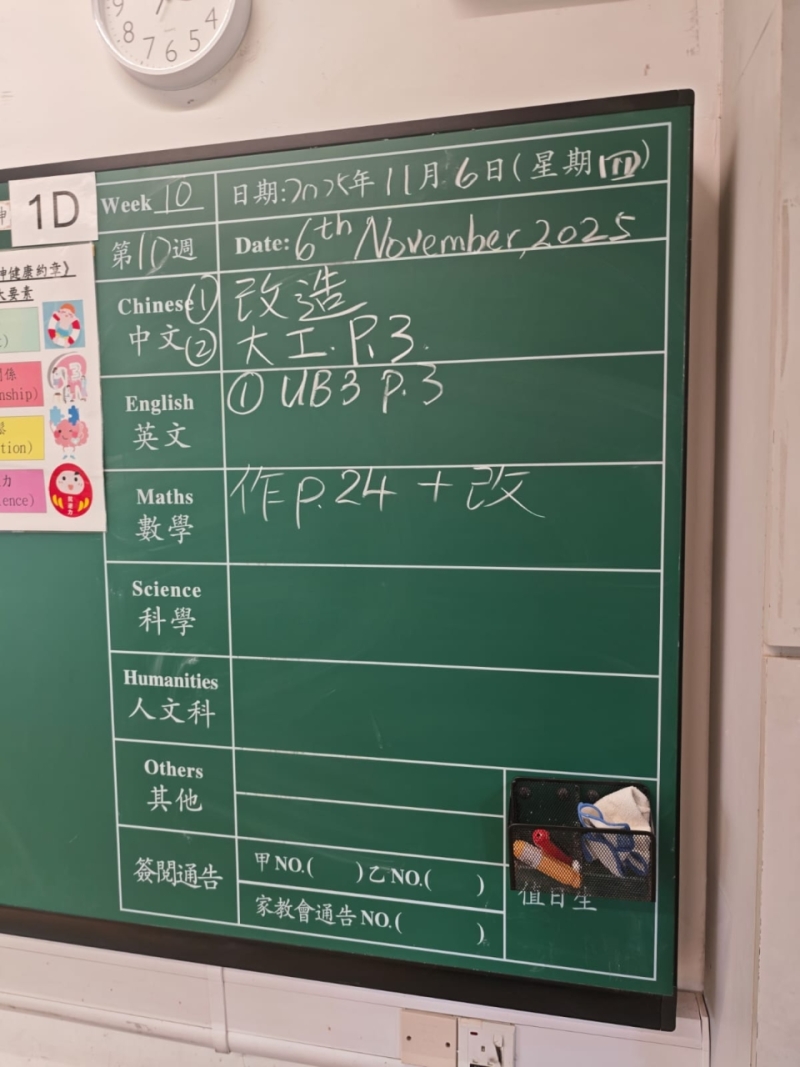 9
8
7 6 5
4
1D
Week 10
日期:2025年11月6日(星期四)
第10週
Date: 6th November, 2025
健康約章》
要素
Chinese ① 改造
中文 ② 大工.P.3.
nship)
tion)
ience)
English ① UB3 p.3
英文
Maths 作p.24 + 改
數學
Science
科學
Humanities
人文科
Others
其他
簽閱通告
甲NO.( )乙NO.( )
家教會通告NO.( )
值日生